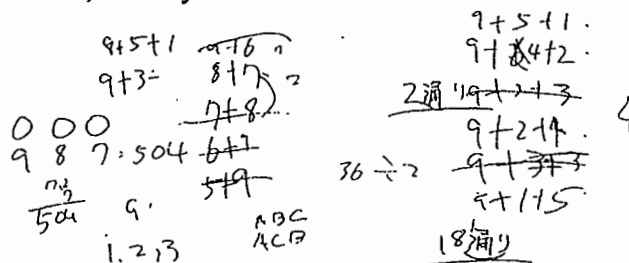 9+5+1
9+3=
8+7
7+8
6+7
5+9
2
0 0 0
9 8 7:504
72
7
504
9.
1.2,3
ABC
ACB
9+5+1.
9+4+2.
2通り
9+2+3
9+2+4.
36÷2
9+3+3
9+1+5
18通り